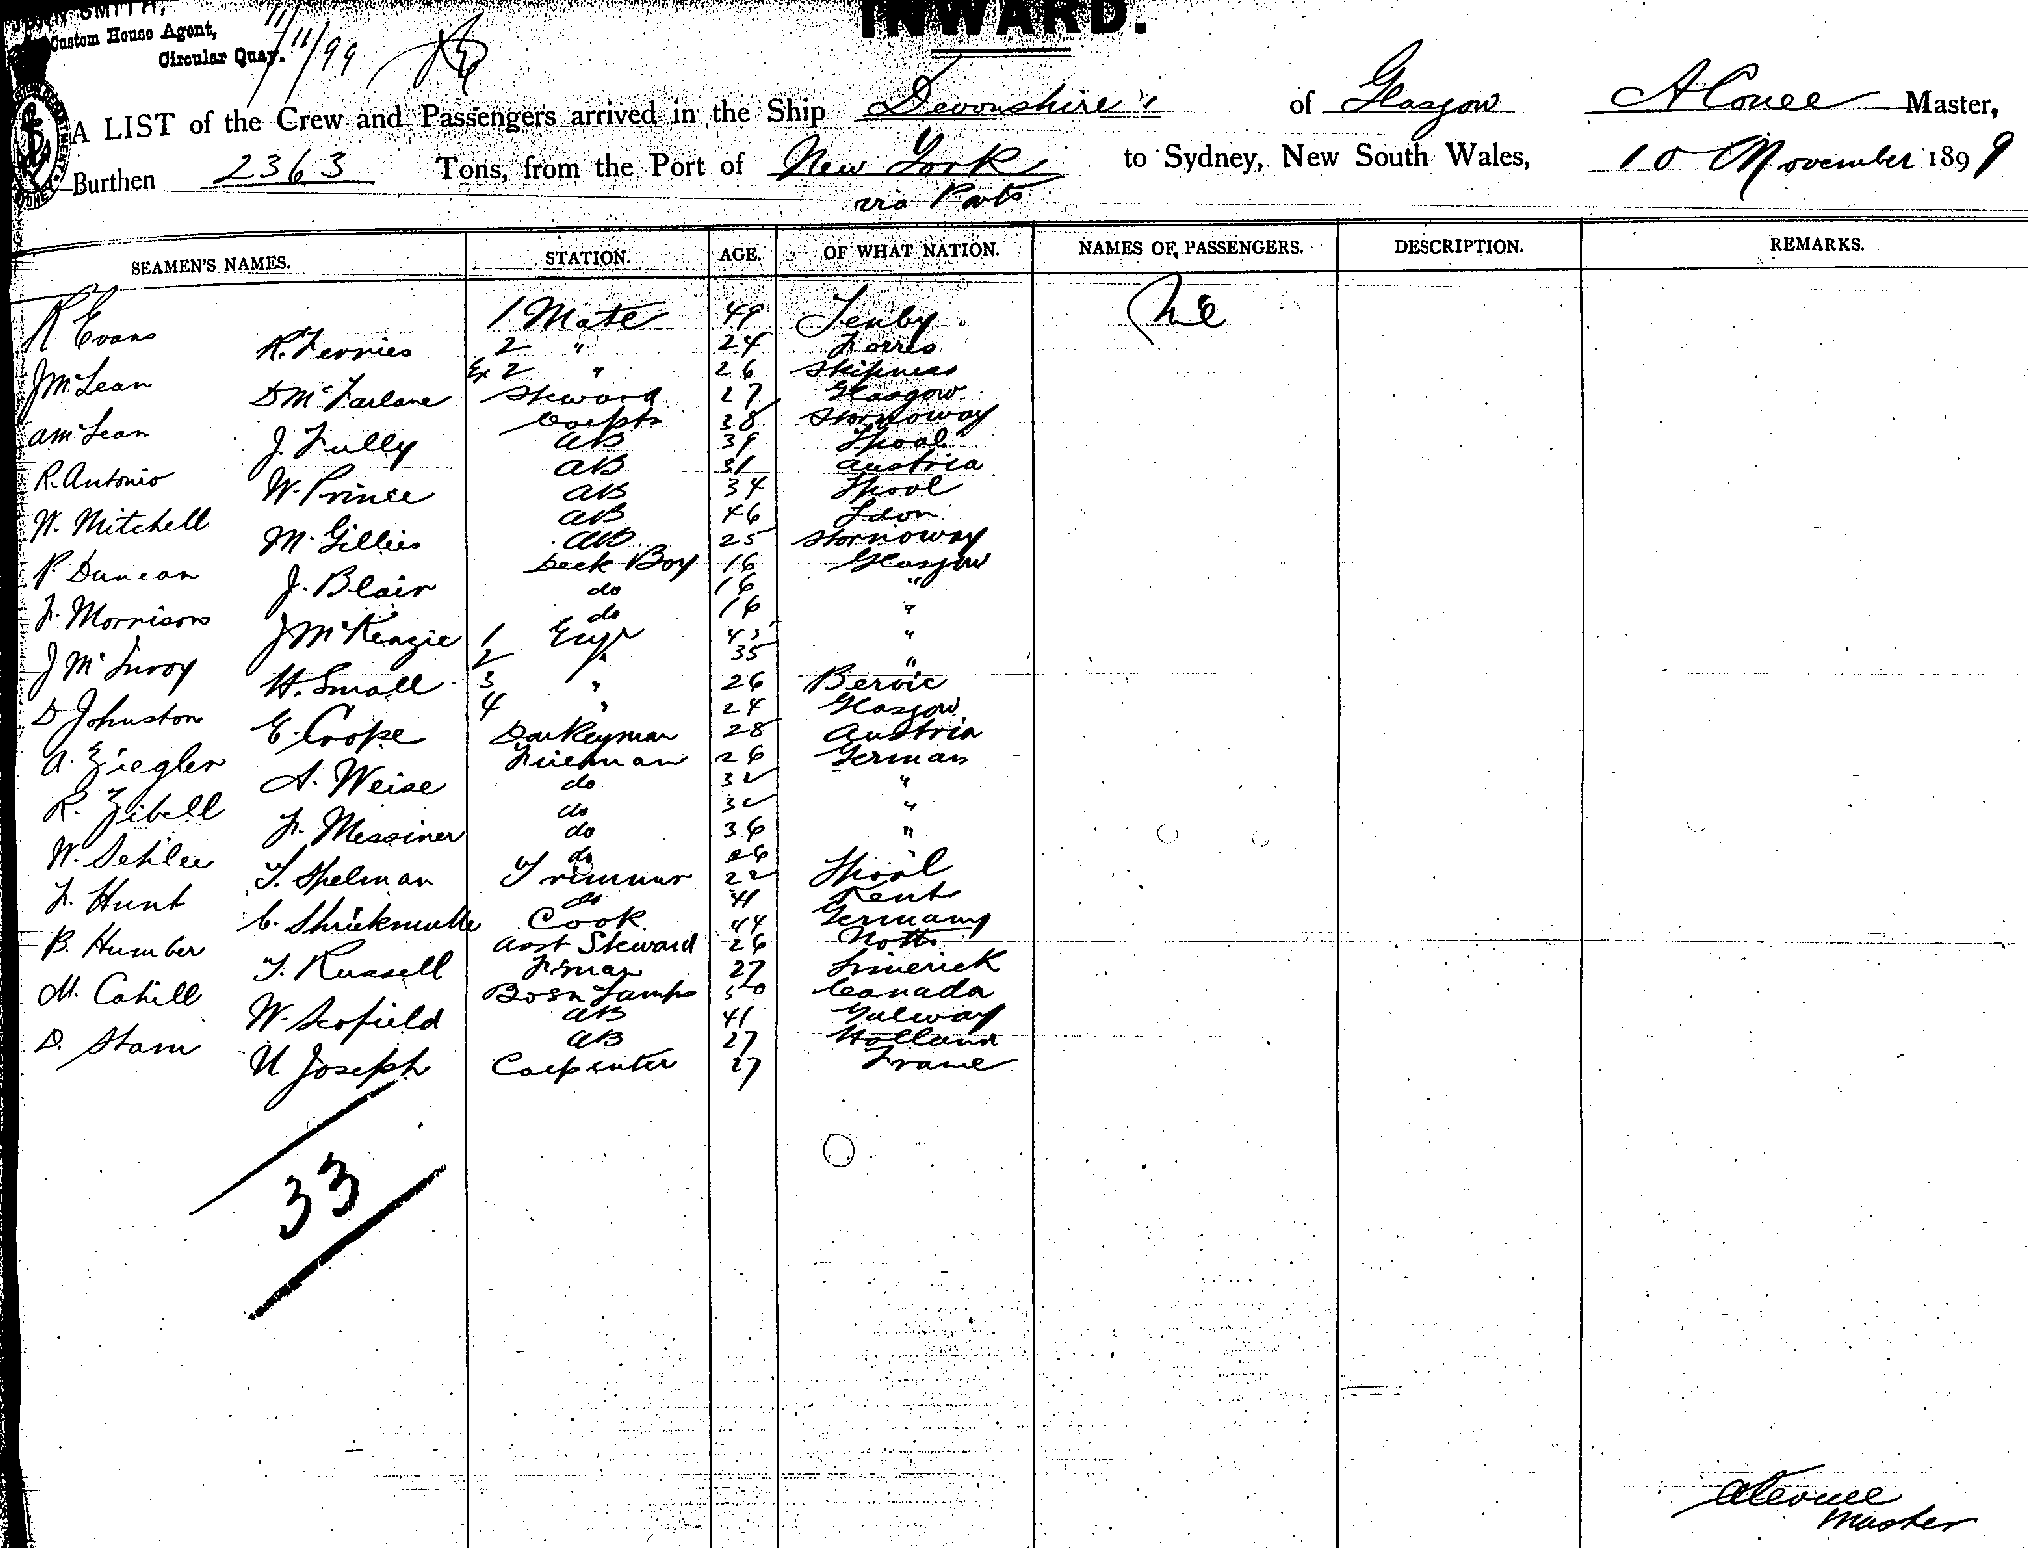 SMITH,
INWARD.
Custom House Agent,
Circular Quay.
11/11/99
A LIST of the Crew and Passengers arrived in the Ship Devonshire of Glasgow Master,
Burthen 2363 Tons, from the Port of New York to Sydney, New South Wales, 10 November 1899
via Ports
SEAMEN'S NAMES. STATION. AGE. OF WHAT NATION. NAMES OF PASSENGERS. DESCRIPTION. REMARKS.
R Evans 1 Mate 49 Tenby Nil
R. Ferries 2 " 24 Forres
J McLean Ex 2 " 26 Skipness
D McFarlane Steward 27 Glasgow
A McLean 38 Stornoway
J. Tully AB 39 Lpool
R. Antonio AB 31 Austria
W. Prince AB 34 Lpool
W. Mitchell AB 46 Ldon
M. Gillies AB 25 Stornoway
P Duncan Deck Boy 16 Glasgow
J. Blair do 16 "
F. Morrison do 16 "
J McKenzie 1 Engr "
J McInroy 2 " 35 "
H. Small 3 " 26 Bervie
D Johnston 4 " 24 Glasgow
E. Crope Donkeyman 28 Austria
A. Ziegler Fireman 26 German
A. Weise do 32 "
R. Zibell do 32 "
F. Messiner do 36 "
W. Sehlee do 26 "
T. Spelman Trimmer 22 Lpool
F. Hunt do 41 Kent
C. Cook 44 Germany
B. Humber Asst Steward 26 Notts
T. Russell Fman 27 Limerick
M. Cahill Bosn Lamps 50 Canada
W. Scofield AB 41 Galway
D. Stam AB 27 Holland
N Joseph Carpenter 27 France
33
Master